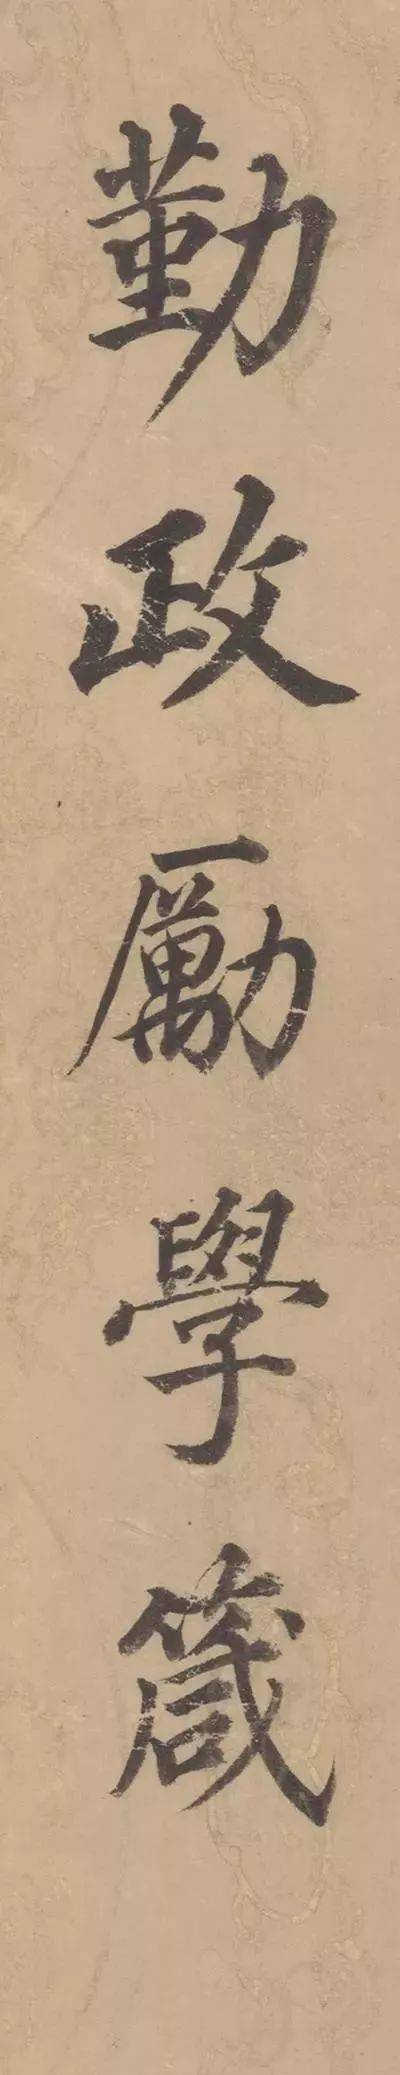 勤政勵學箴